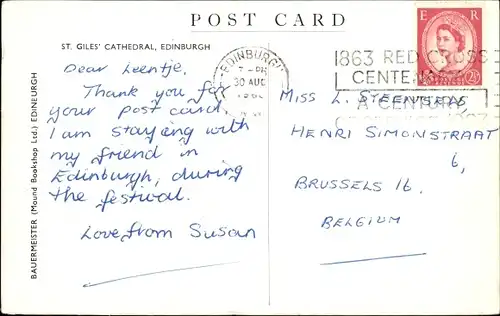 POST CARD
ST. GILES' CATHEDRAL, EDINBURGH
Dear Leentje,
Thank you for
your post card.
I am staying with
my friend in
Edinburgh, during
the festival.
Love from Susan
BAUERMEISTER (Mound Bookshop Ltd.) EDINBURGH
EDINBURGH
7 - PM
30 AUG
1863 RED CROSS
CENTENARY
A CENTURY
E R
2½
MISS L.
HENRI SIMONSTRAAT
6,
BRUSSELS 16.
BELGIUM